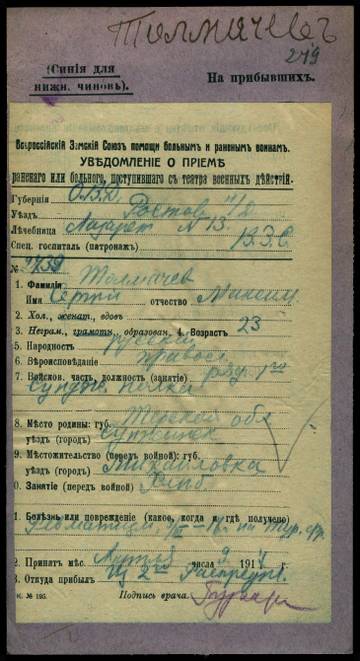 Толмачевъ
249
(Синія для
нижн. чиновъ).
На прибывшихъ.
Всероссійскій Земскій Союзъ помощи больнымъ и раненымъ воинамъ.
УВѢДОМЛЕНІЕ О ПРІЕМѢ
раненаго или больного, поступившаго съ театра военныхъ дѣйствій.
Губернія О.В.Д.
Уѣздъ Ростов н/Д
Лѣчебница Лазарет N 13
Спец. госпиталь (патронажъ) В.З.С.
№
1. Фамилія Толмачев
Имя Сергей отчество Максим.
2. Хол., женат., вдовъ
3. Неграм., грамотн., образован. 4. Возрастъ 23
5. Народность русский
6. Вѣроисповѣданіе правосл.
7. Войсков. часть, должность (занятіе) ряд. 1го
полка
8. Мѣсто родины: губ. Терской обл
уѣздъ (городъ)
9. Мѣстожительство (передъ войной): губ.
уѣздъ (городъ) Михайловка
0. Занятіе (передъ войной) Хлѣб
1. Болѣзнь или поврежденіе (какое, когда и гдѣ получено)
Ревматизм, на Тур. фр.
2. Принятъ мѣс. числа 9 191
3. Откуда прибылъ Из 2го Распред.
к. № 195.
Подпись врача.